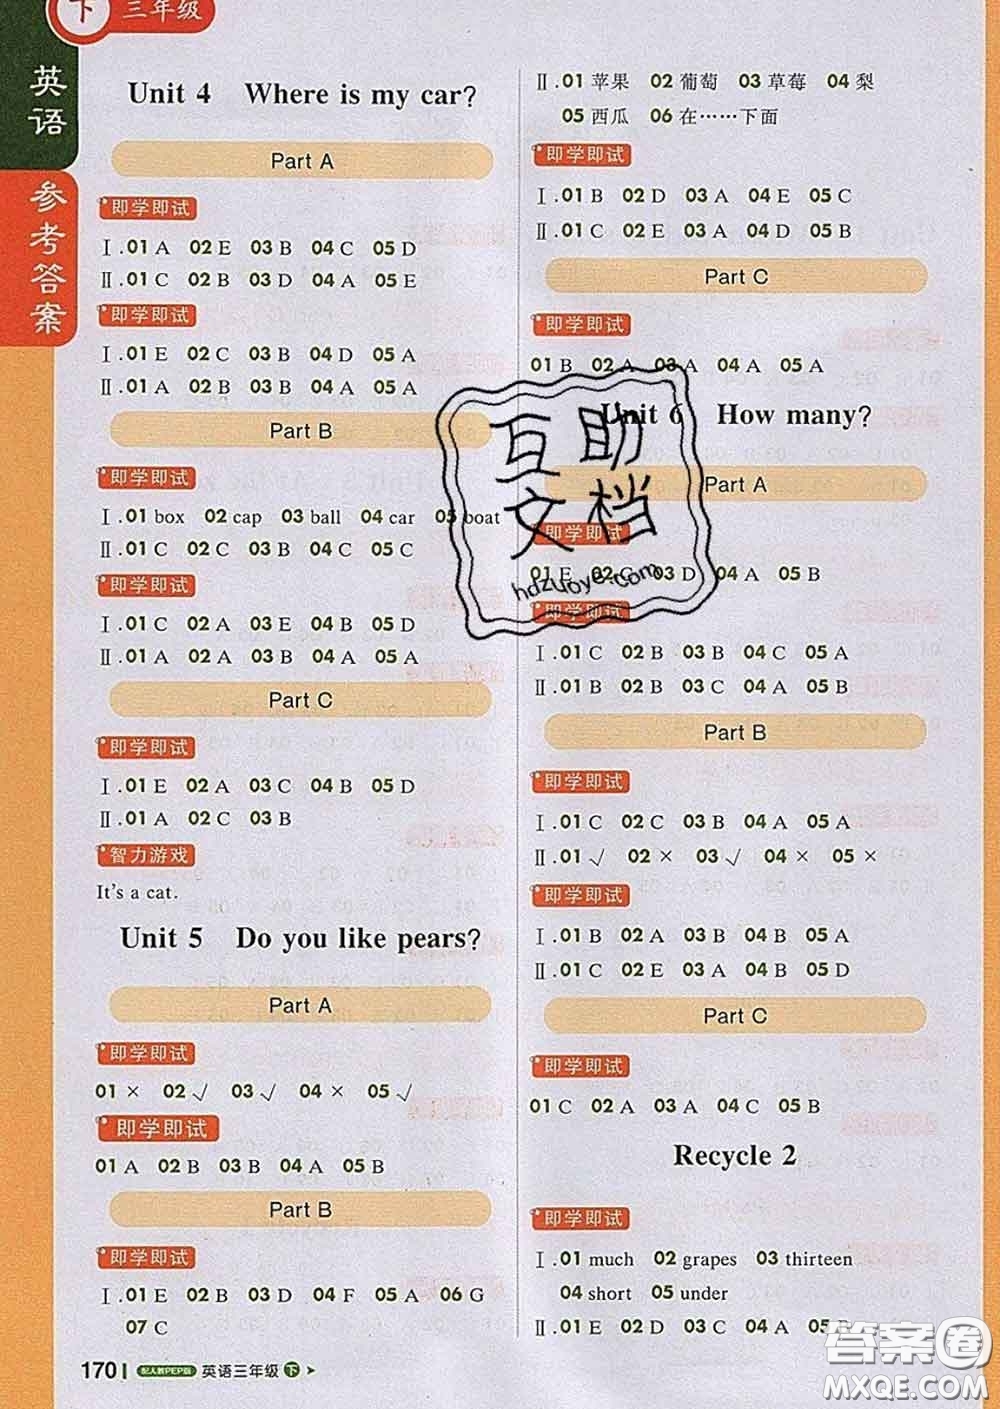 下 三年级
英语
参考答案
Unit 4 Where is my car?
Part A
即学即试
Ⅰ.01 A 02 E 03 B 04 C 05 D
Ⅱ.01 C 02 B 03 D 04 A 05 E
即学即试
Ⅰ.01 E 02 C 03 B 04 D 05 A
Ⅱ.01 A 02 B 03 B 04 A 05 A
Part B
即学即试
Ⅰ.01 box 02 cap 03 ball 04 car 05 boat
Ⅱ.01 C 02 C 03 B 04 C 05 C
即学即试
Ⅰ.01 C 02 A 03 E 04 B 05 D
Ⅱ.01 A 02 A 03 B 04 A 05 A
Part C
即学即试
Ⅰ.01 E 02 A 03 C 04 B 05 D
Ⅱ.01 A 02 C 03 B
智力游戏
It's a cat.
Unit 5 Do you like pears?
Part A
即学即试
01 × 02 √ 03 √ 04 × 05 √
即学即试
01 A 02 B 03 B 04 A 05 B
Part B
即学即试
Ⅰ.01 E 02 B 03 D 04 F 05 A 06 G
07 C
Ⅱ.01 苹果 02 葡萄 03 草莓 04 梨
05 西瓜 06 在……下面
即学即试
Ⅰ.01 B 02 D 03 A 04 E 05 C
Ⅱ.01 C 02 E 03 A 04 D 05 B
Part C
即学即试
01 B 02 A 03 A 04 A 05 A
Unit 6 How many?
Part A
即学即试
01 E 02 C 03 D 04 A 05 B
即学即试
Ⅰ.01 C 02 B 03 B 04 C 05 A
Ⅱ.01 B 02 B 03 B 04 A 05 B
Part B
即学即试
Ⅰ.01 C 02 C 03 B 04 A 05 A
Ⅱ.01 √ 02 × 03 √ 04 × 05 ×
即学即试
Ⅰ.01 B 02 A 03 B 04 B 05 A
Ⅱ.01 C 02 E 03 A 04 B 05 D
Part C
即学即试
01 C 02 A 03 A 04 C 05 B
Recycle 2
即学即试
Ⅰ.01 much 02 grapes 03 thirteen
04 short 05 under
Ⅱ.01 E 02 D 03 C 04 A 05 B
互助
文档
hdzuoye.com
170 配人教PEP版 英语三年级 下
答案圈
MXQE.COM